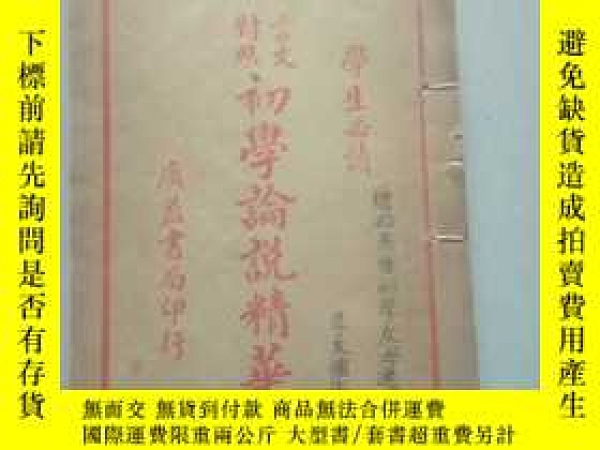 避免缺貨造成拍賣費用產生
學生必讀
言文
對照
初學論說精華
廣益書局印行
下標前請先詢問是否有存貨
無面交 無貨到付款 商品無法合併運費
國際運費限重兩公斤 大型書/套書超重費另計